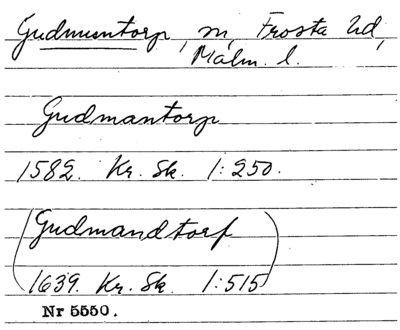 Gudmuntorp, sn, Frosta hd,
Malm. l.
Gudmantorp
1582. Kr. Sk. 1:250.
(Gudmandtorf
1639. Kr. Sk. 1:515)
Nr 5550.